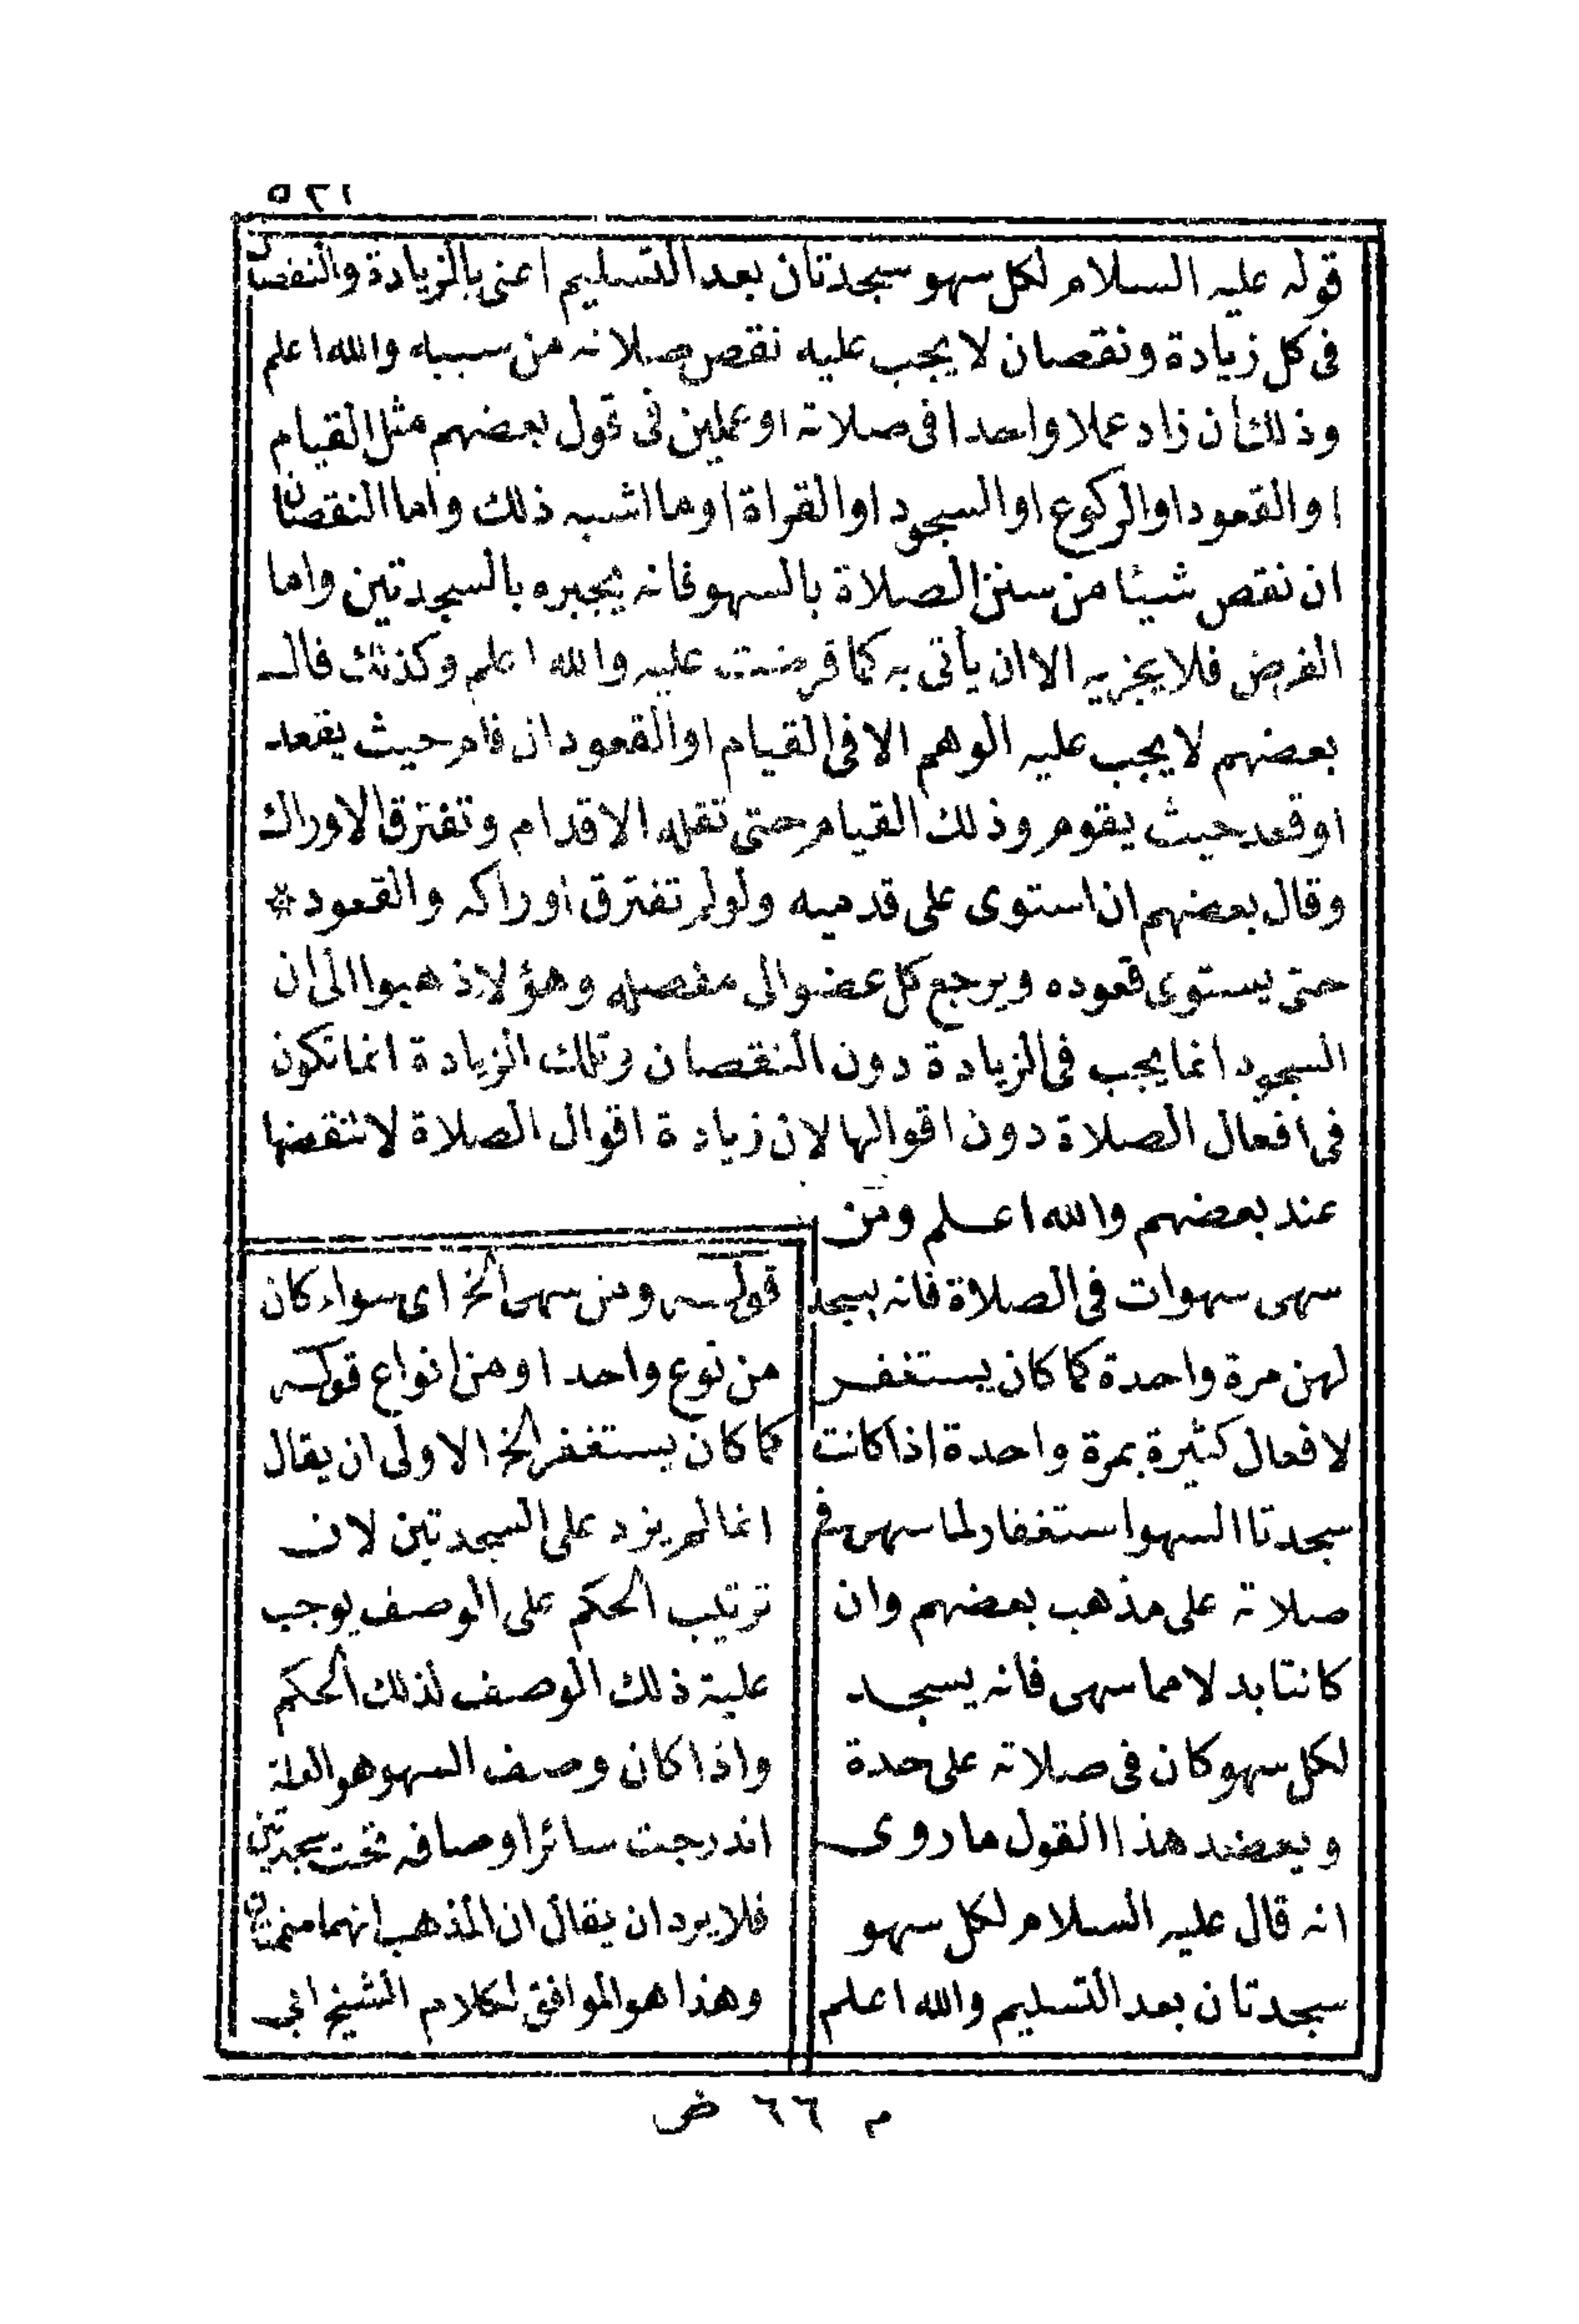 ٥٢١
قوله عليه السلام لكل سهو سجدتان بعد التسليم اعنى بالزيادة والنقصان
فى كل زيادة ونقصان لا يجب عليه نقص صلاته من سببه والله اعلم
وذلك ان زاد عملا واحدا فى صلاته او عملين فى قول بعضهم مثل القيام
او القعود او الركوع او السجود او القراة او ما اشبه ذلك واما النقصان
ان نقص شيئا من سنن الصلاة بالسهو فانه يجبره بالسجدتين واما
الفرض فلا يجزيه الا ان يأتى به كما فرضت عليه والله اعلم وكذلك قال
بعضهم لا يجب عليه الوهم الا فى القيام او القعود ان قام حيث يقعد
او قعد حيث يقوم وذلك القيام حتى تقله الاقدام وتفترق الاوراك
وقال بعضهم ان استوى على قدميه ولو لم تفترق اوراكه والقعود *
حتى يستوى قعوده ويرجع كل عضو الى مفصله وهؤلاذ هبوا الى ان
السجود انما يجب فى الزيادة دون النقصان وتلك الزيادة انما تكون
فى افعال الصلاة دون اقوالها لان زيادة اقوال الصلاة لا تنقضها
عند بعضهم والله اعلم ومن
سهى سهوات فى الصلاة فانه يسجد
لهن مرة واحدة كما كان يستغفر
لافعال كثيرة بمرة واحدة اذا كانت
سجدتا السهو استغفار لما سهى فى
صلاته على مذهب بعضهم وان
كانتا بدلا مما سهى فانه يسجد
لكل سهو كان فى صلاته على حدة
ويعضد هذا القول ما روى
انه قال عليه السلام لكل سهو
سجدتان بعد التسليم والله اعلم
قوله ومن سهى الخ اى سواء كان
من نوع واحد او من انواع قوله
كما كان يستغفر الخ الاولى ان يقال
انما لم يزد على السجدتين لان
ترتيب الحكم على الوصف يوجب
علية ذلك الوصف لذلك الحكم
واذا كان وصف السهو هو العلة
اندرجت سائر اوصافه تحت سجدتين
فلا يرد ان يقال ان المذهب انهما
وهذا هو الموافق لكلام الشيخ ابى
م ٦٦ ض